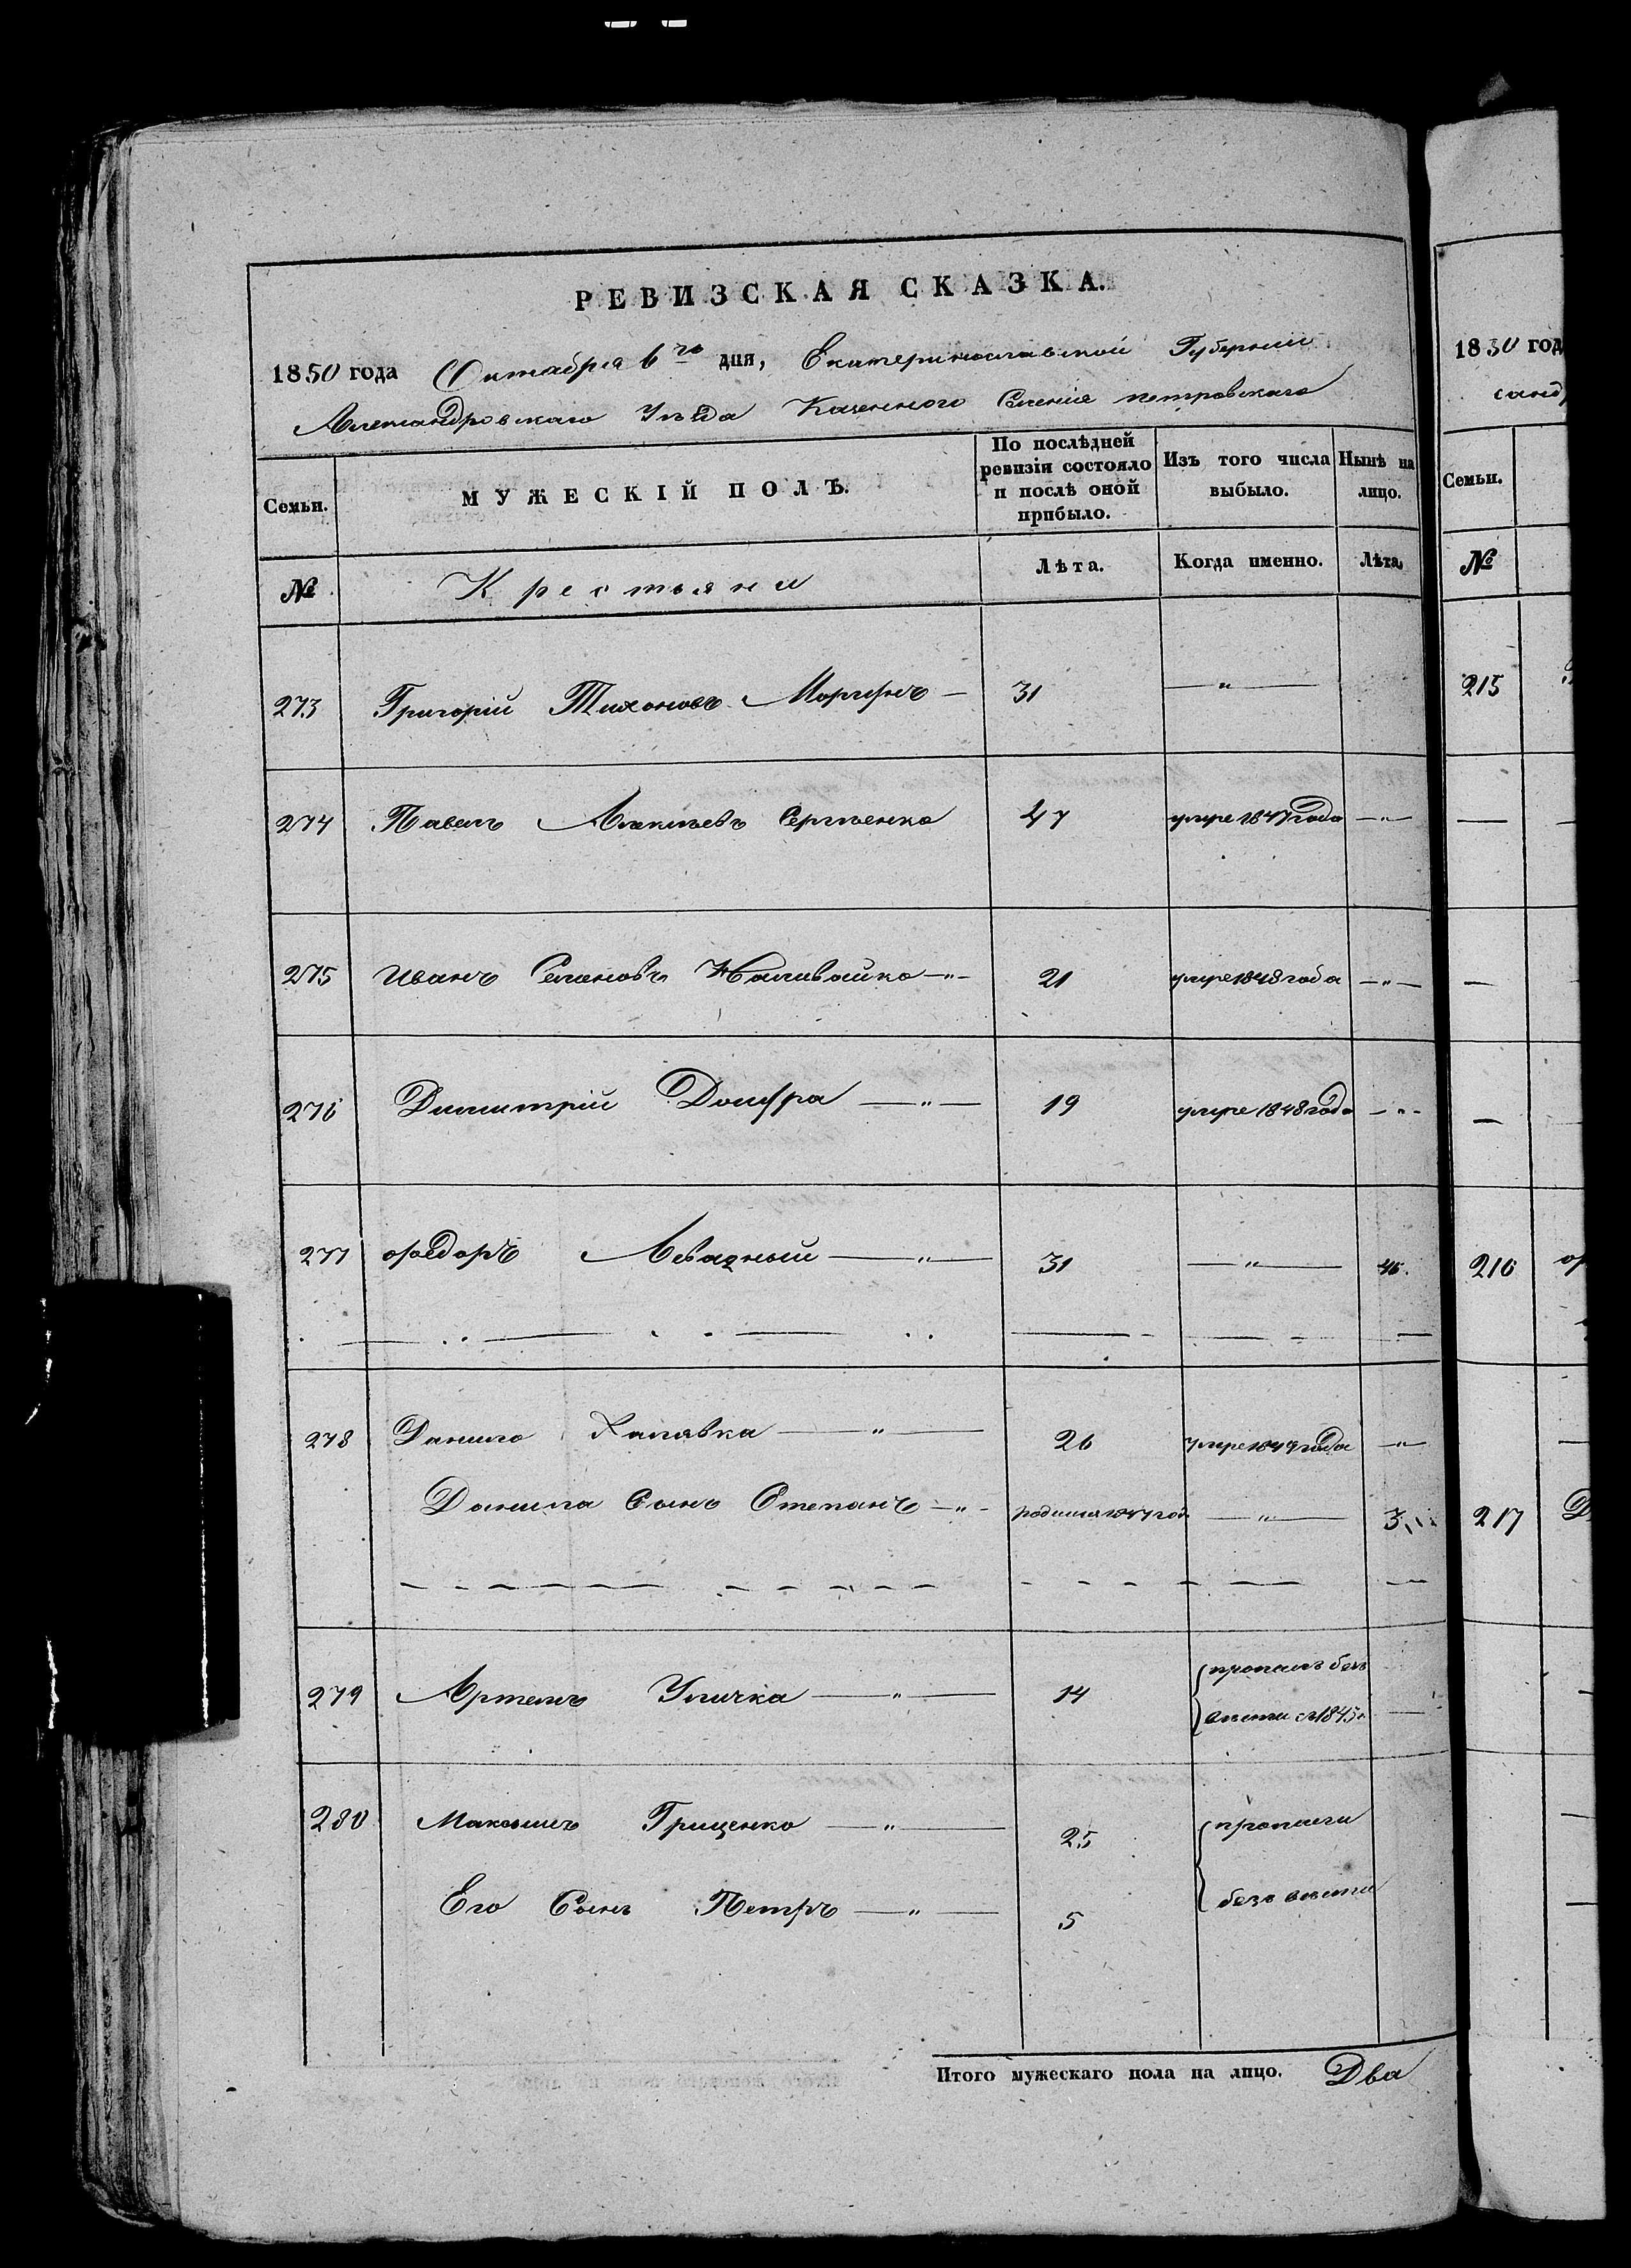 РЕВИЗСКАЯ СКАЗКА.
1850 года Октября 6го дня, Екатеринославской Губернии
Александровскаго Уѣзда Казенного Селенія петровскаго
Семьи. МУЖЕСКІЙ ПОЛЪ. По послѣдней ревизіи состояло и послѣ оной прибыло. Изъ того числа выбыло. Нынѣ на лицо.
№ Крестьяни Лѣта. Когда именно. Лѣта.
273 Григорій Тихоновъ — 31 — " —
274 Павелъ Алексѣевъ Сергѣенко 47 умре 1847 года — " —
275 Иванъ Семеновъ Наливайко — " — 21 умре 1848 года — " —
276 Димитрій — " — 19 умре 1848 года — " —
277 Ѳедоръ Левадный — " — 31 — " — 46.
278 Данило Халявка — " — 26 умре 1849 года — " —
Данила Сынъ Степанъ — " — родился 1847 год. — " — 3
279 Артемъ Уличка — " — 14 пропалъ безъ
вѣсти съ 1845 г
280 Максимъ Гриценко — " — 25 пропали
Его Сынъ Петръ — " — 5 безъ вѣсти
Итого мужескаго пола на лицо. Два
1850 год
санд
Семьи.
№
215
216
217 Д